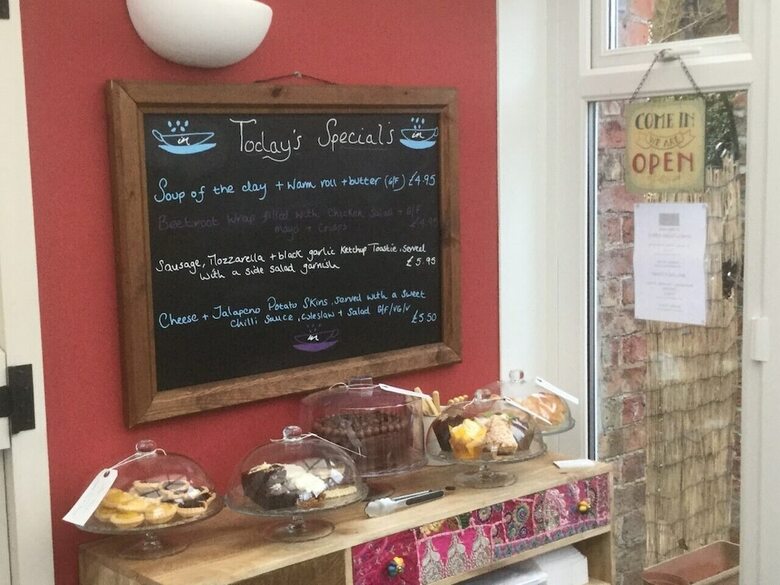 Today's Special's
Soup of the day + warm roll + butter (G/F) £4.95
Beetroot Wrap filled with chicken salad + G/F
mayo + crisps £4.95
Sausage, Mozzarella + black garlic Ketchup Toastie, served
with a side salad garnish £5.95
Cheese + Jalapeno Potato Skins, served with a sweet
chilli sauce, coleslaw + salad G/F/VG/V £5.50
COME IN
WE ARE
OPEN